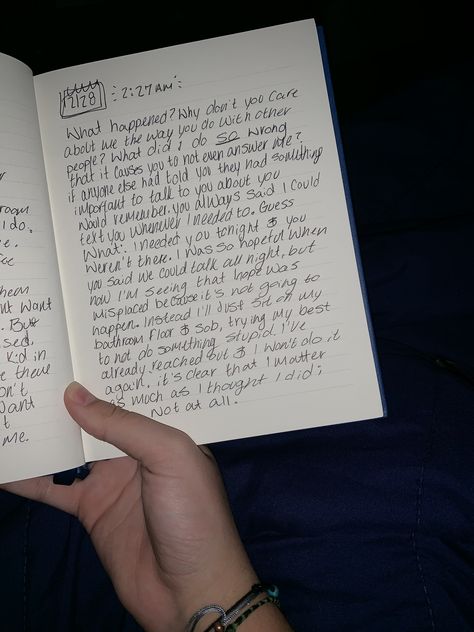 room
I do,
e.
hem
nt want
. But
sed,
K'd in
e there
on't
Want
t
me.
12/28 2:27 AM
What happened? Why don't you care
about me the way you do with other
people? What did I do so wrong
that it causes you to not even answer me?
if anyone else had told you they had something
important to talk to you about you
would remember. you always said I could
text you whenever I needed to. Guess
What: I needed you tonight & you
weren't there. I was so hopeful when
you said we could talk all night, but
now I'm seeing that hope was
misplaced because it's not going to
happen. Instead I'll just sit on my
bathroom floor & sob, trying my best
to not do something stupid. I've
already reached out & I won't do it
again. it's clear that I matter
as much as I thought I did;
Not at all.